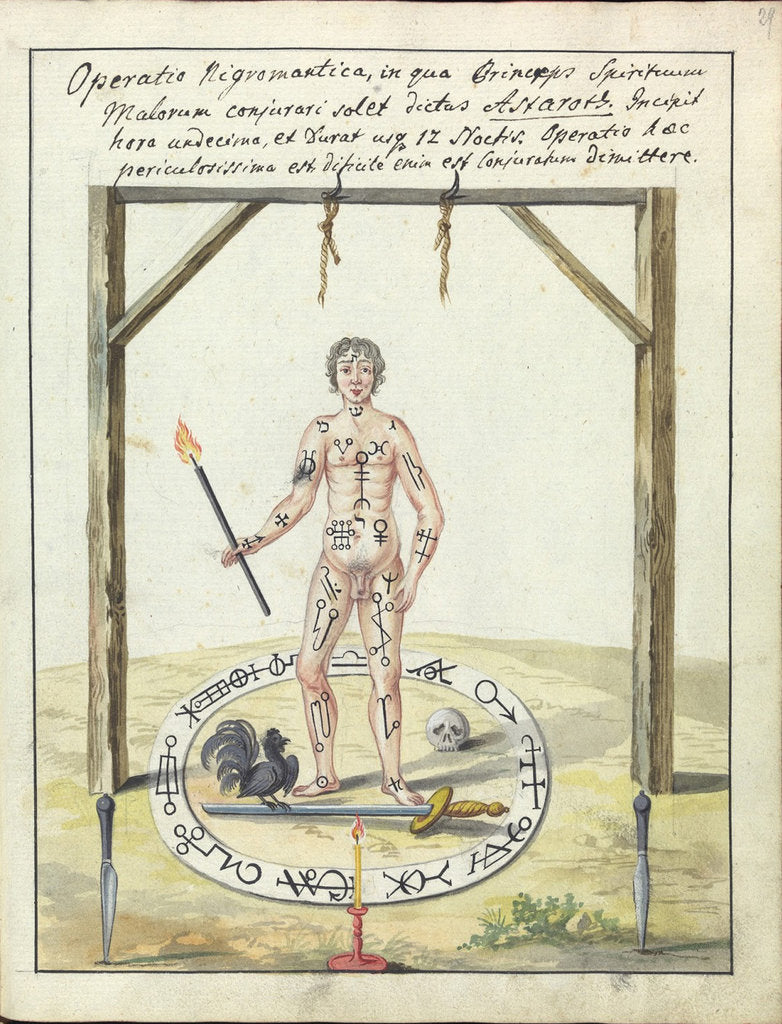 29
Operatio Nigromantica, in qua Princeps Spirituum
Malorum conjurari solet dictus Astaroth. Incipit
hora undecima, et durat usq 12 Noctis. Operatio haec
periculosissima est, dificile enim est Conjuratum dimittere.